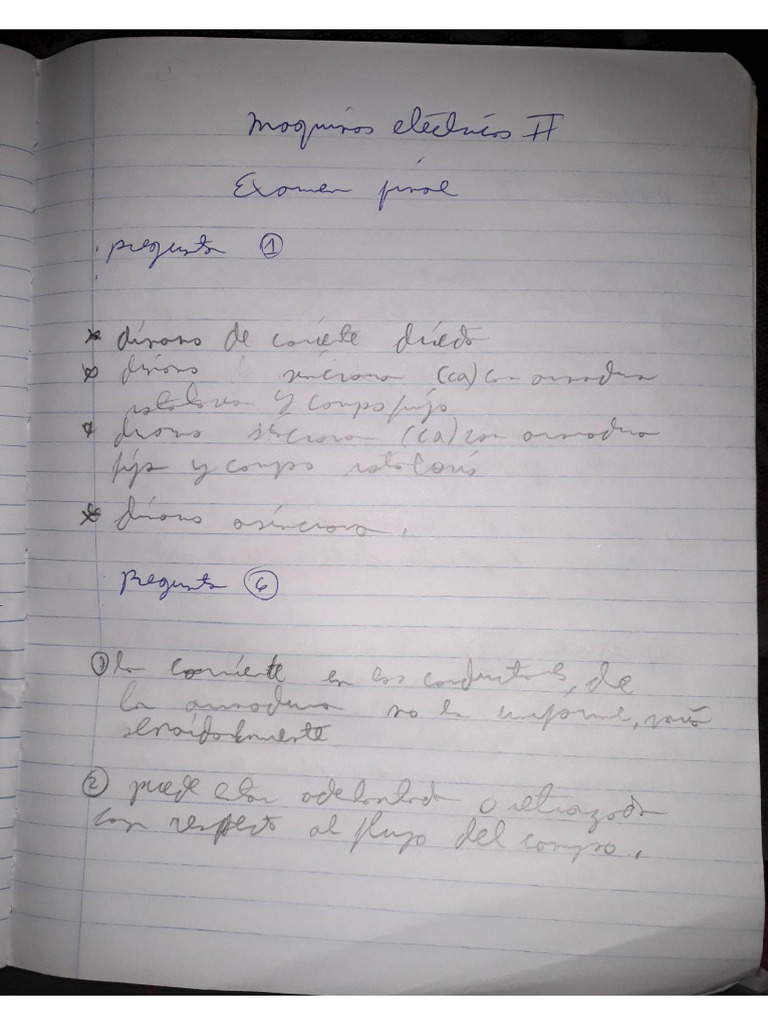 Maquinas electricas II
Examen final
pregunta 1
* dinamo de coriete directa
* dinamo sincrona (ca) con armadura
rotatoria y campo fijo
* dinamo sincrona (ca) con armadura
fija y campo rotatorio
* dinamo asincrona.
Pregunta 6
1 la corriente en los conductores, de
la armadura no es uniforme, varia
senoidalmente
2 puede estar adelantada o retrazada
con respecto al flujo del campo.